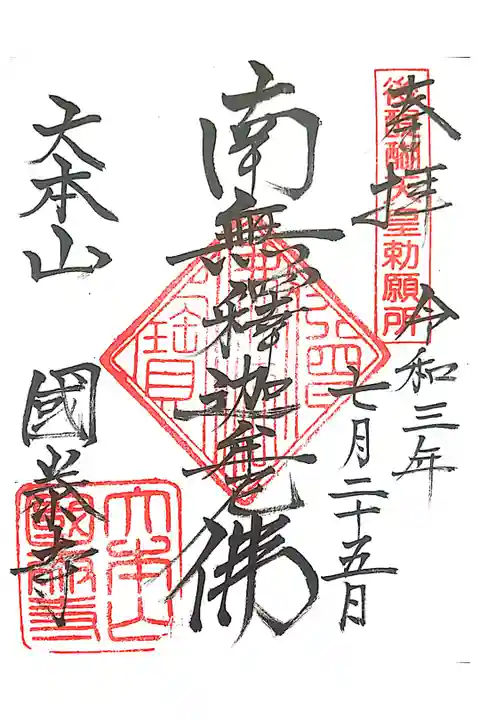 奉拝
後醍醐天皇勅願所
令和三年
七月二十五日
南無釋迦牟尼佛
大本山
國泰寺
大本山
國泰寺